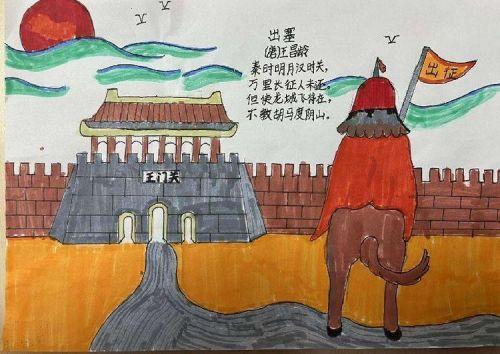 出塞
(唐)王昌龄
秦时明月汉时关，
万里长征人未还。
但使龙城飞将在，
不教胡马度阴山。
出征
玉门关